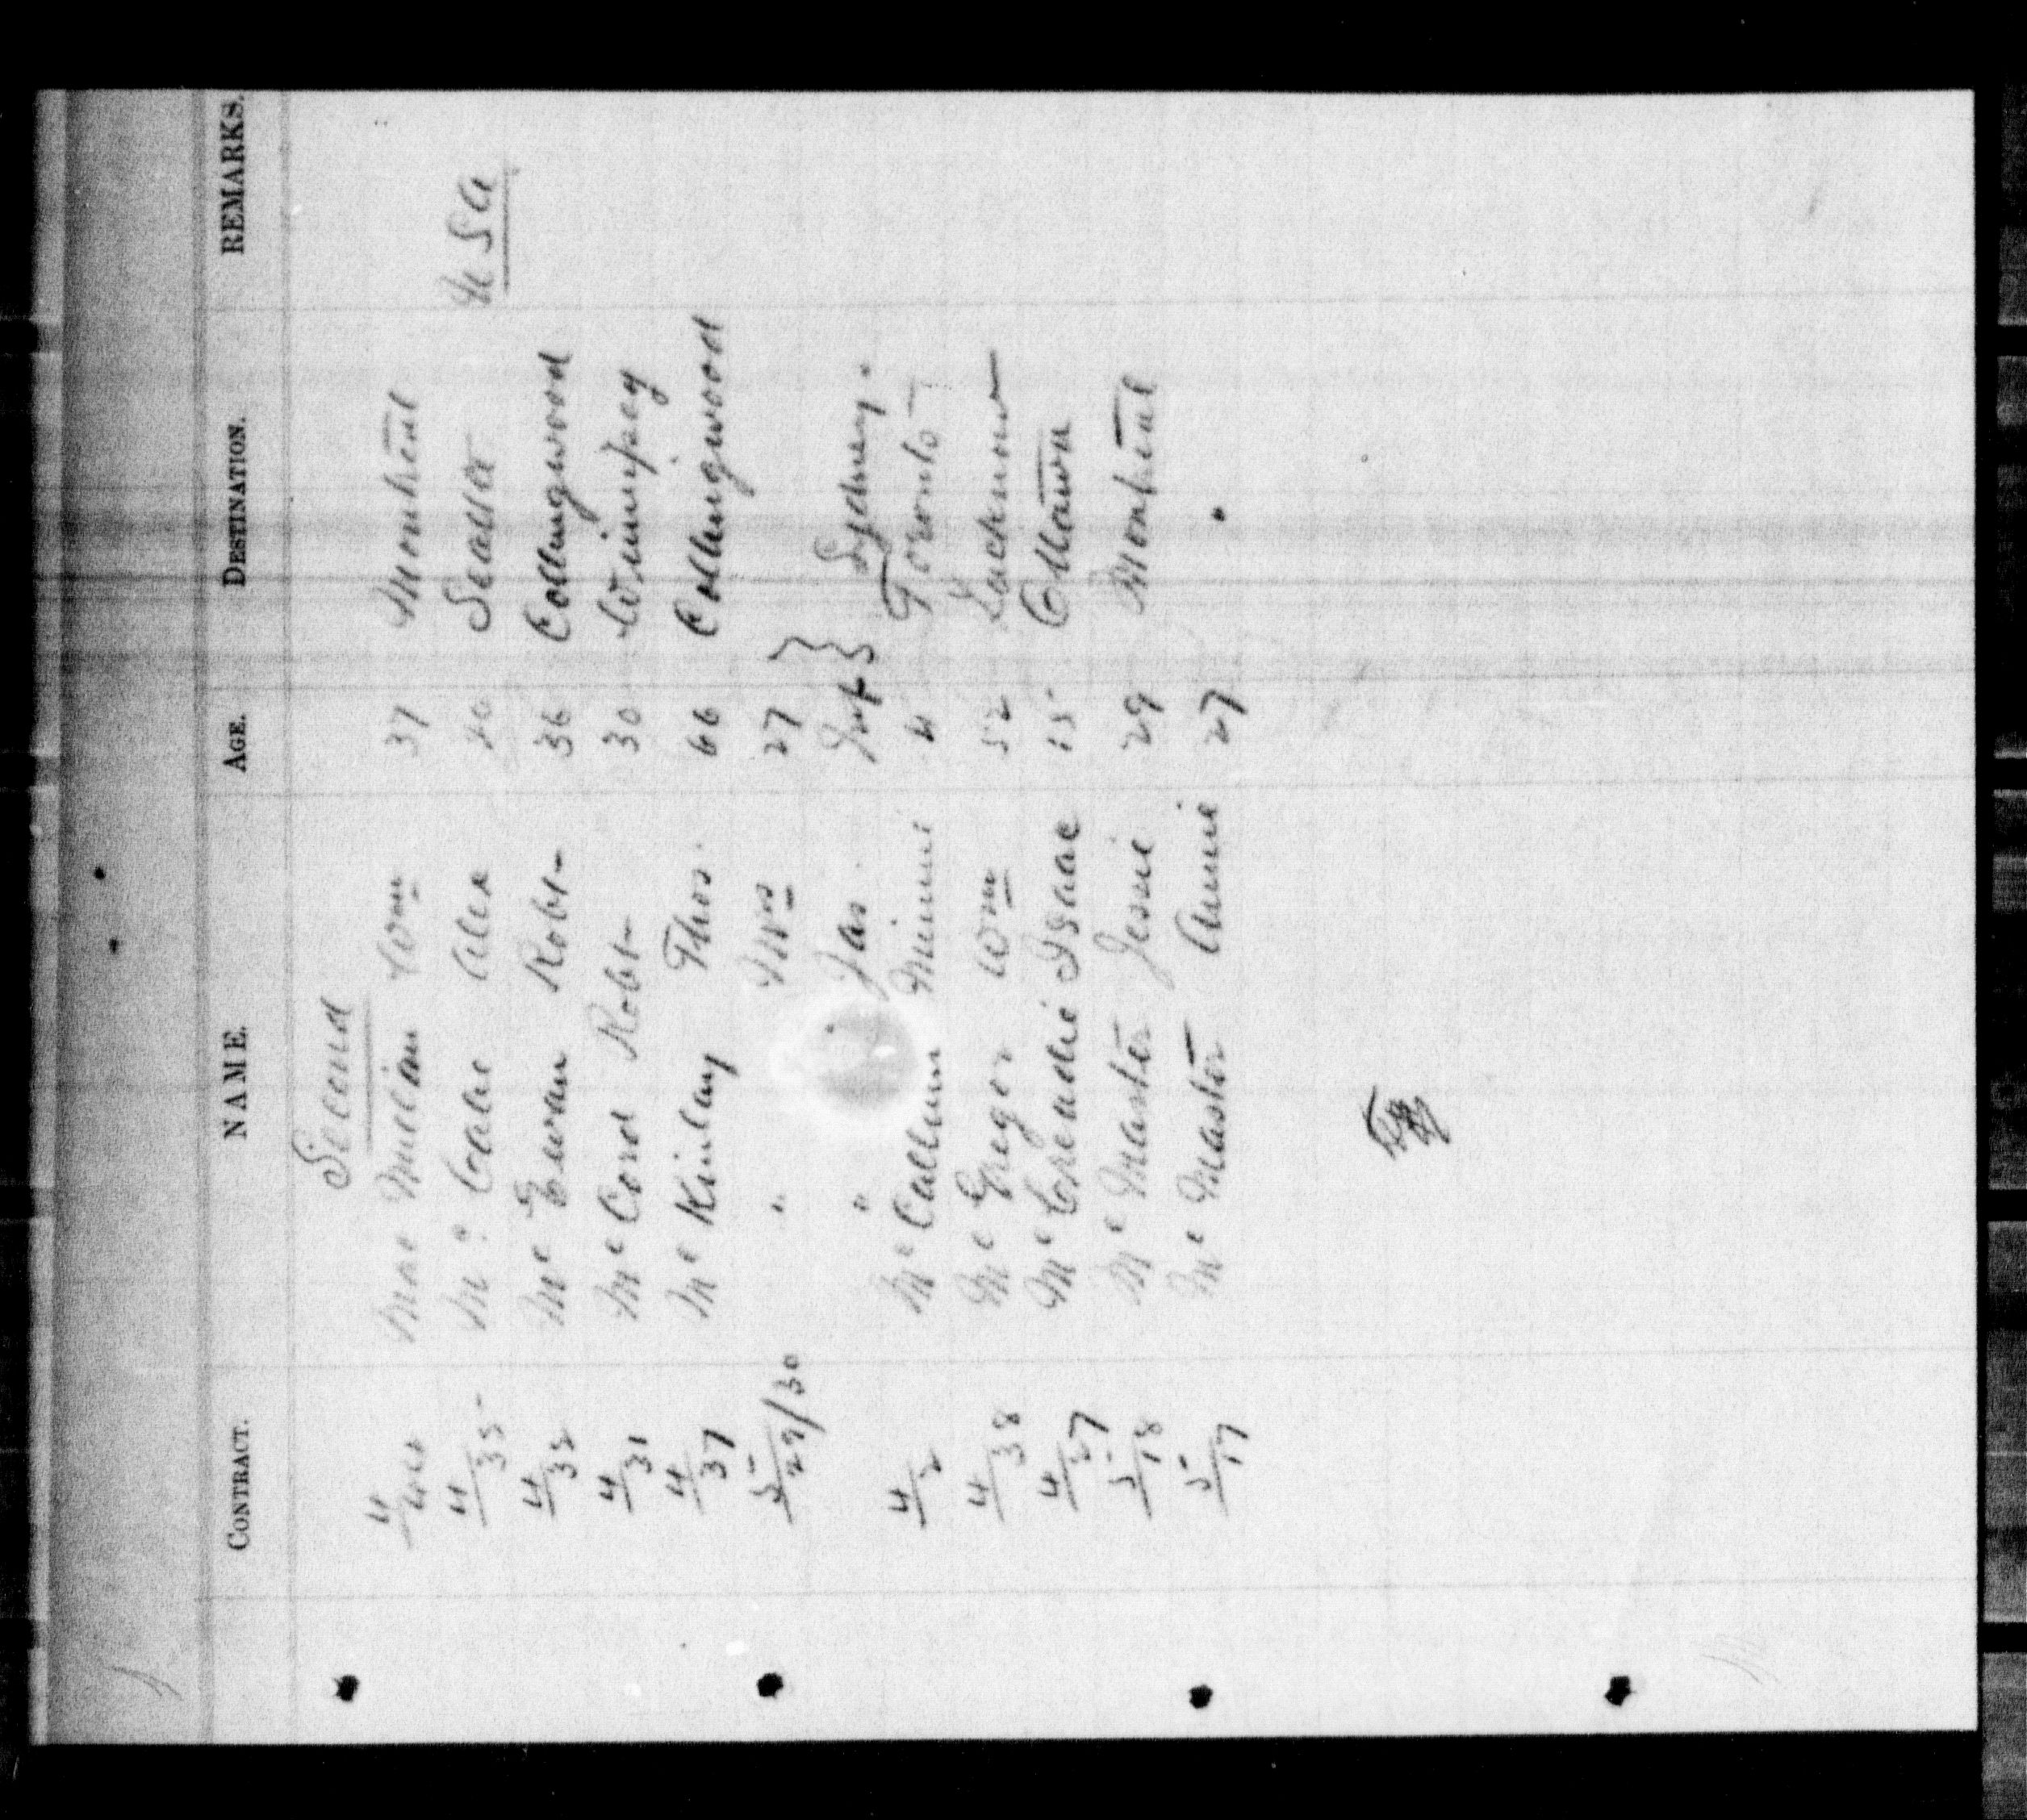 CONTRACT. NAME. AGE. DESTINATION. REMARKS.
Second
4/44 Mac Wm 37 Montreal
4/35 Mc Cabe Alex 40 Seattle USA
4/32 Mc Ewan Robt 36 Collingwood
4/31 Mc Cord Robt 30 Winnipeg
4/37 Mc Kinlay Thos. 66 Collingwood
5/29/30 " Mrs 27 }
" Jas. Inf } Sydney.
4/2 Mc Callum Minnie 21 Toronto
4/38 Mc Gregor Wm 52 Lucknow
4/27 Mc Creadie Isaac 15 Ottawa
5/18 Mc Master Jessie 29 Montreal
5/17 Mc Master Annie 27 "